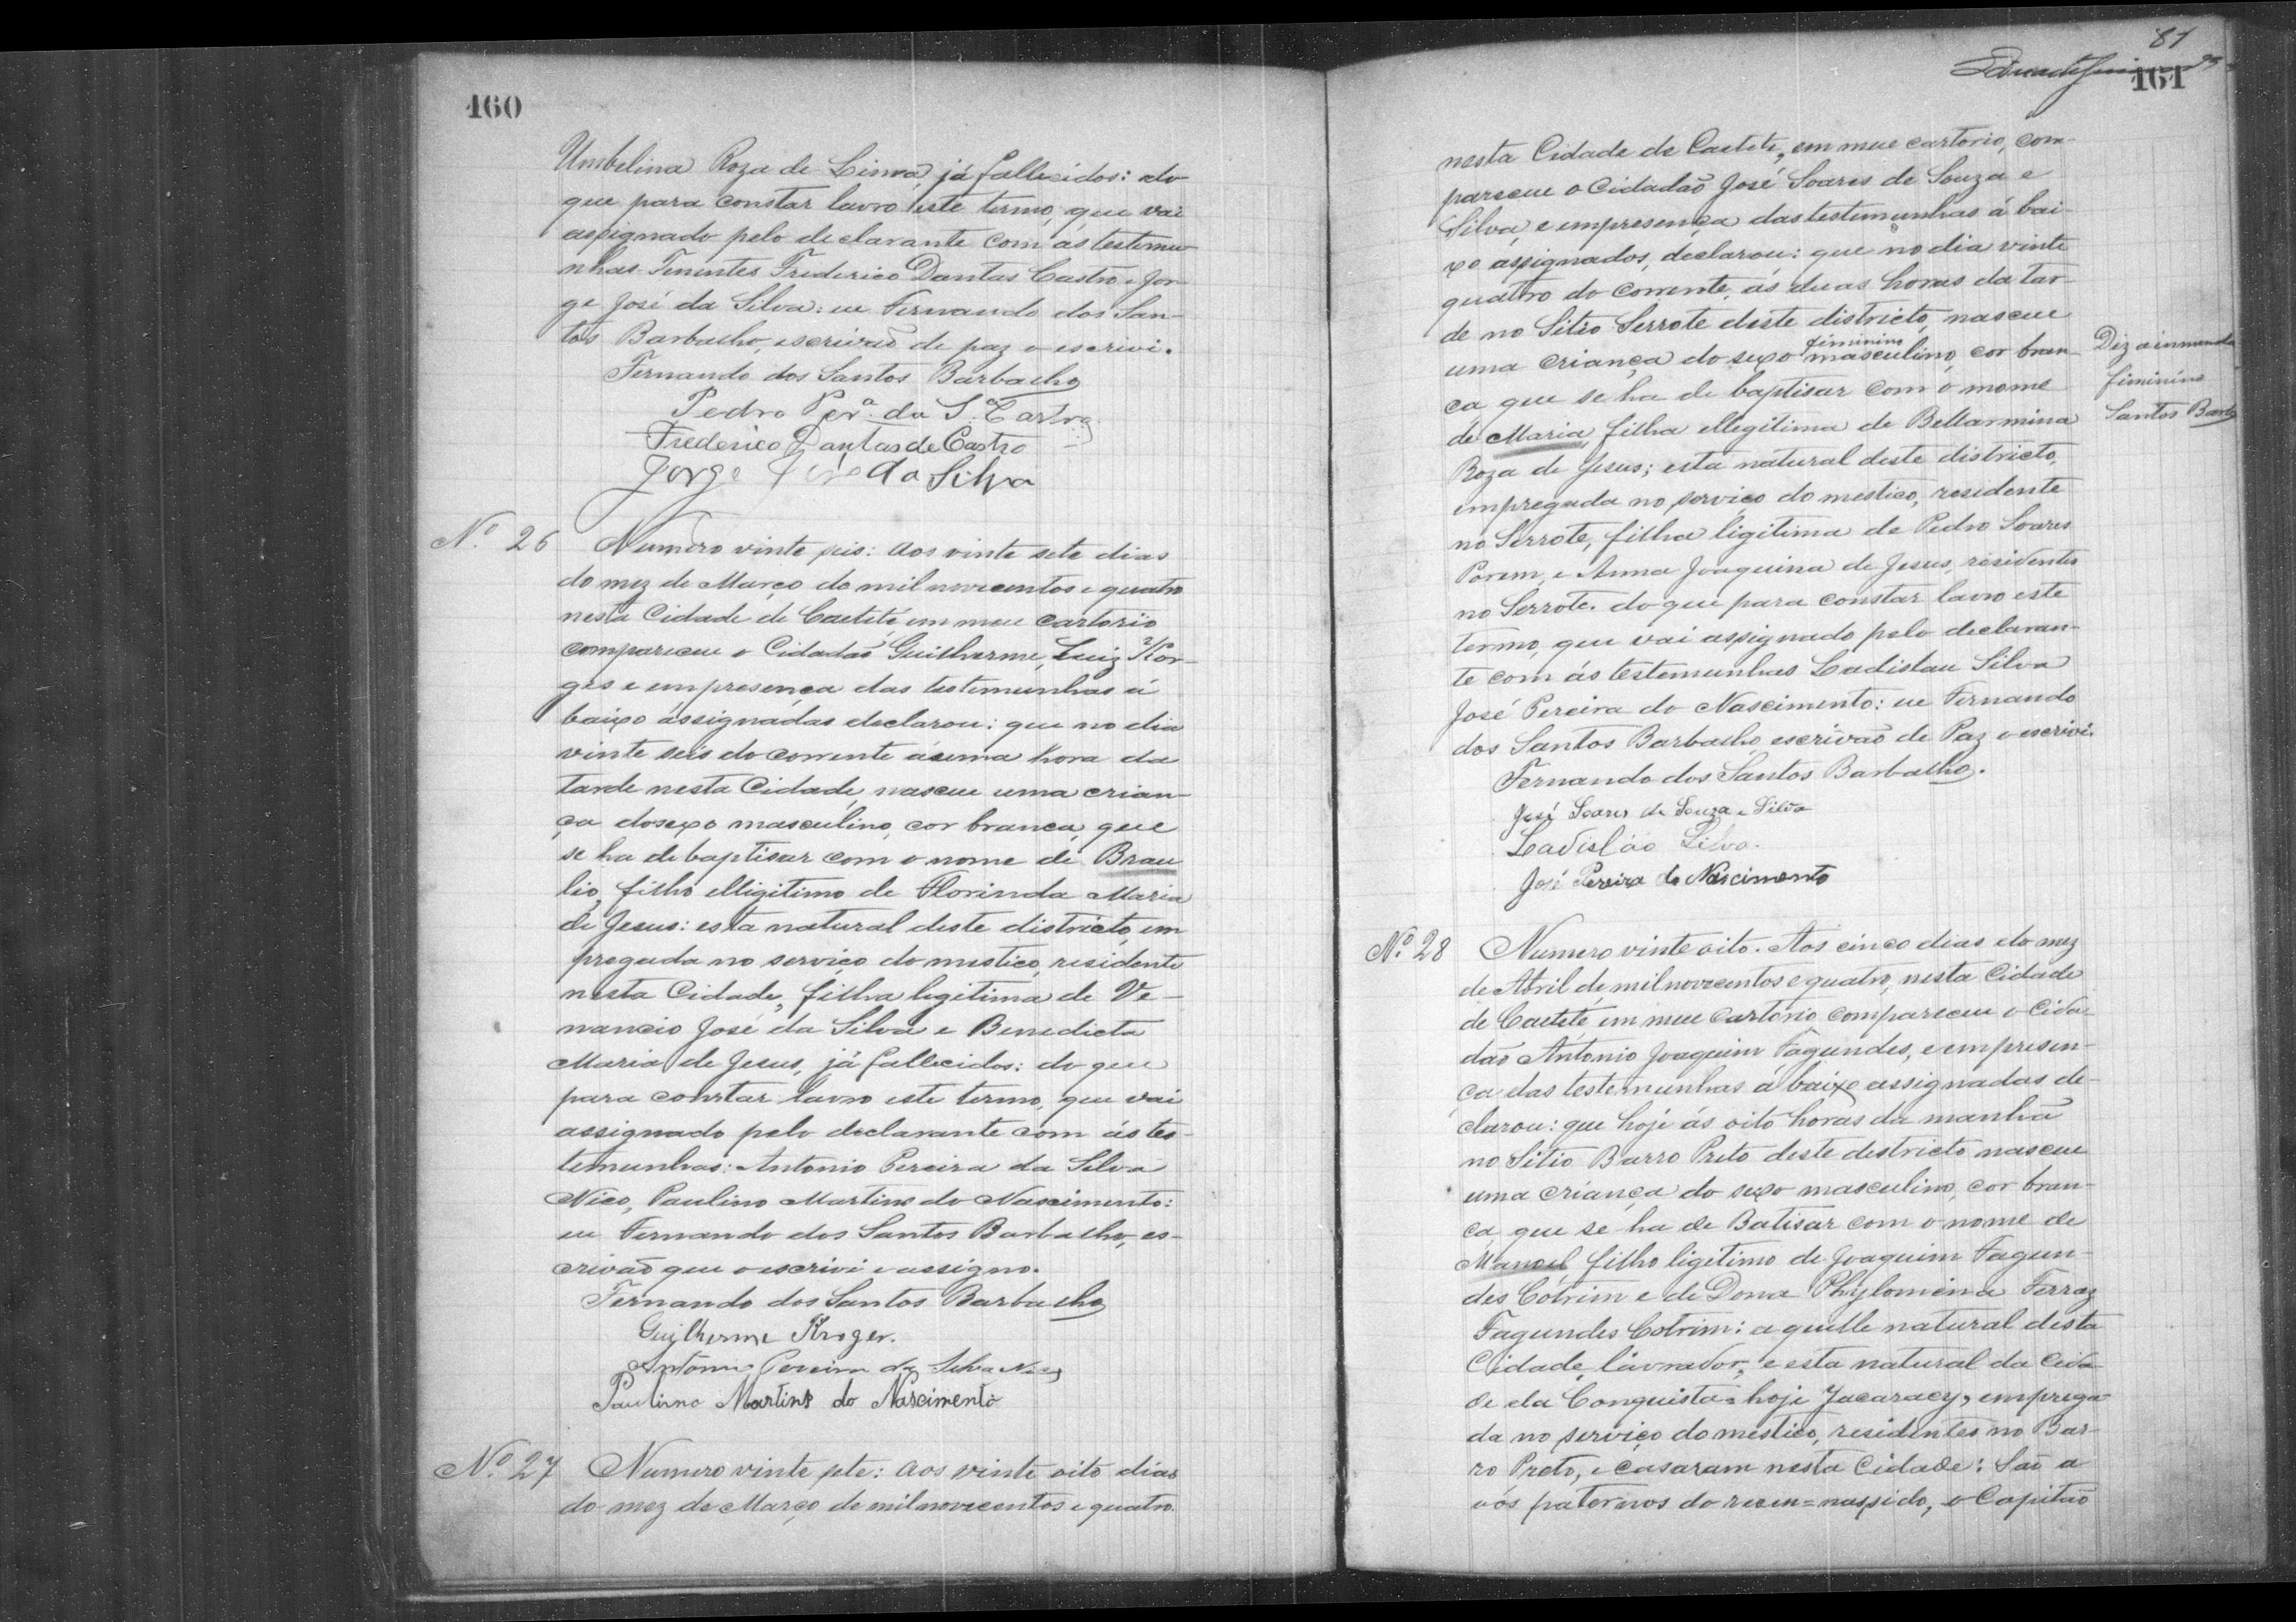 160
Umbelina Roza de Lima, já fallecidos: do
que para constar lavro este termo, que vai
assignado pelo declarante com ás testemu-
nhas Tenentes Frederico Dantas Castro e Jor-
ge José da Silva: eu Fernando dos San-
tos Barbacho, escrivaõ de paz o escrivi.
Fernando dos Santos Barbacho
Pedro Perª. da S. Castro
Frederico Dantas de Castro
Jorge José da Silva
Nº 26 Numero vinte seis: Aos vinte sete dias
do mez de Março de mil novecentos e quatro
nesta Cidade de Caeteté em meu cartorio
compareceu o Cidadaõ Guilherme Luiz Kor-
ges e em presença das testemunhas á
baixo ássignadas declarou: que no dia
vinte seis do corrente ás uma hora da
tarde nesta Cidade, nasceu uma crian-
ça do sexo masculino, cor branca, que
se ha de baptisar com o nome de Brau
lio, filho elligitimo de Florinda Maria
de Jesus: esta natural deste districto, em
pregada no serviço domestico, residente
nesta Cidade, filha legitima de Ve-
nancio José da Silva e Benedicta
Maria de Jesus, já fallecidos: do que
para constar lavro este termo, que vai
assignado pelo declarante com ás tes-
temunhas: Antonio Pereira da Silva
Nico, Paulino Martins do Nascimento:
eu Fernando dos Santos Barbacho, es-
crivaõ que o escrivi e assigno.
Fernando dos Santos Barbacho
Guilherme Kroger.
Antonio Pereira da Silva Nico
Paulino Martins do Nascimento
Nº 27 Numero vinte sete: Aos vinte oito dias
do mez de Março de mil novecentos e quatro
81
161
nesta Cidade de Caeteté, em meu cartorio, com-
pareceu o Cidadaõ José Soares de Souza e
Silva, e em presença das testemunhas á bai-
xo assignados, declarou: que no dia vinte
quatro do corrente, ás duas horas da tar-
de no Sitio Serrote deste districto, nasceu
feminino
uma criança do sexo masculino, cor bran-
ca que se ha de baptisar com o nome
de Maria, filha ellegitima de Bellarmina
Roza de Jesus; esta natural deste districto,
empregada no serviço domestico, residente
no Serrote, filha ligitima de Pedro Soares
Porem, e Anna Joaquina de Jesus, residentes
no Serrote. do que para constar lavro este
termo, que vai assignado pelo declaran-
te com ás testemunhas Ladislau Silva
José Pereira do Nascimento: eu Fernando
dos Santos Barbacho escrivaõ de Paz o escrivi.
Fernando dos Santos Barbacho.
José Soares de Souza e Silva
Ladisláo Silva.
José Pereira do Nascimento
Diz a inmenda
feminino
Santos Barbº
Nº 28 Numero vinte oito. Aos cinco dias do mez
de Abril de mil novecentos e quatro, nesta Cidade
de Caeteté em meu Cartorio compareceu o Cida-
daõ Antonio Joaquim Fagundes, e em presen-
ça das testemunhas á baixo assignadas de-
clarou: que hoje ás oito horas da manhã
no Sitio Barro Preto deste destricto nasceu
uma criança do sexo masculino, cor bran-
ca, que se ha de Batisar com o nome de
Manoel filho ligitimo de Joaquim Fagun-
des Cotrim e de Dona Phylomena Ferraz
Fagundes Cotrim: aquelle natural desta
Cidade, lavrador, e esta natural da Cida-
de da Conquista = hoje Jacaracy, emprega-
da no serviço domestico, residentes no Bar-
ro Preto, e casaram nesta Cidade: Saõ a
vós paternos do recem=nassido, o Capitaõ